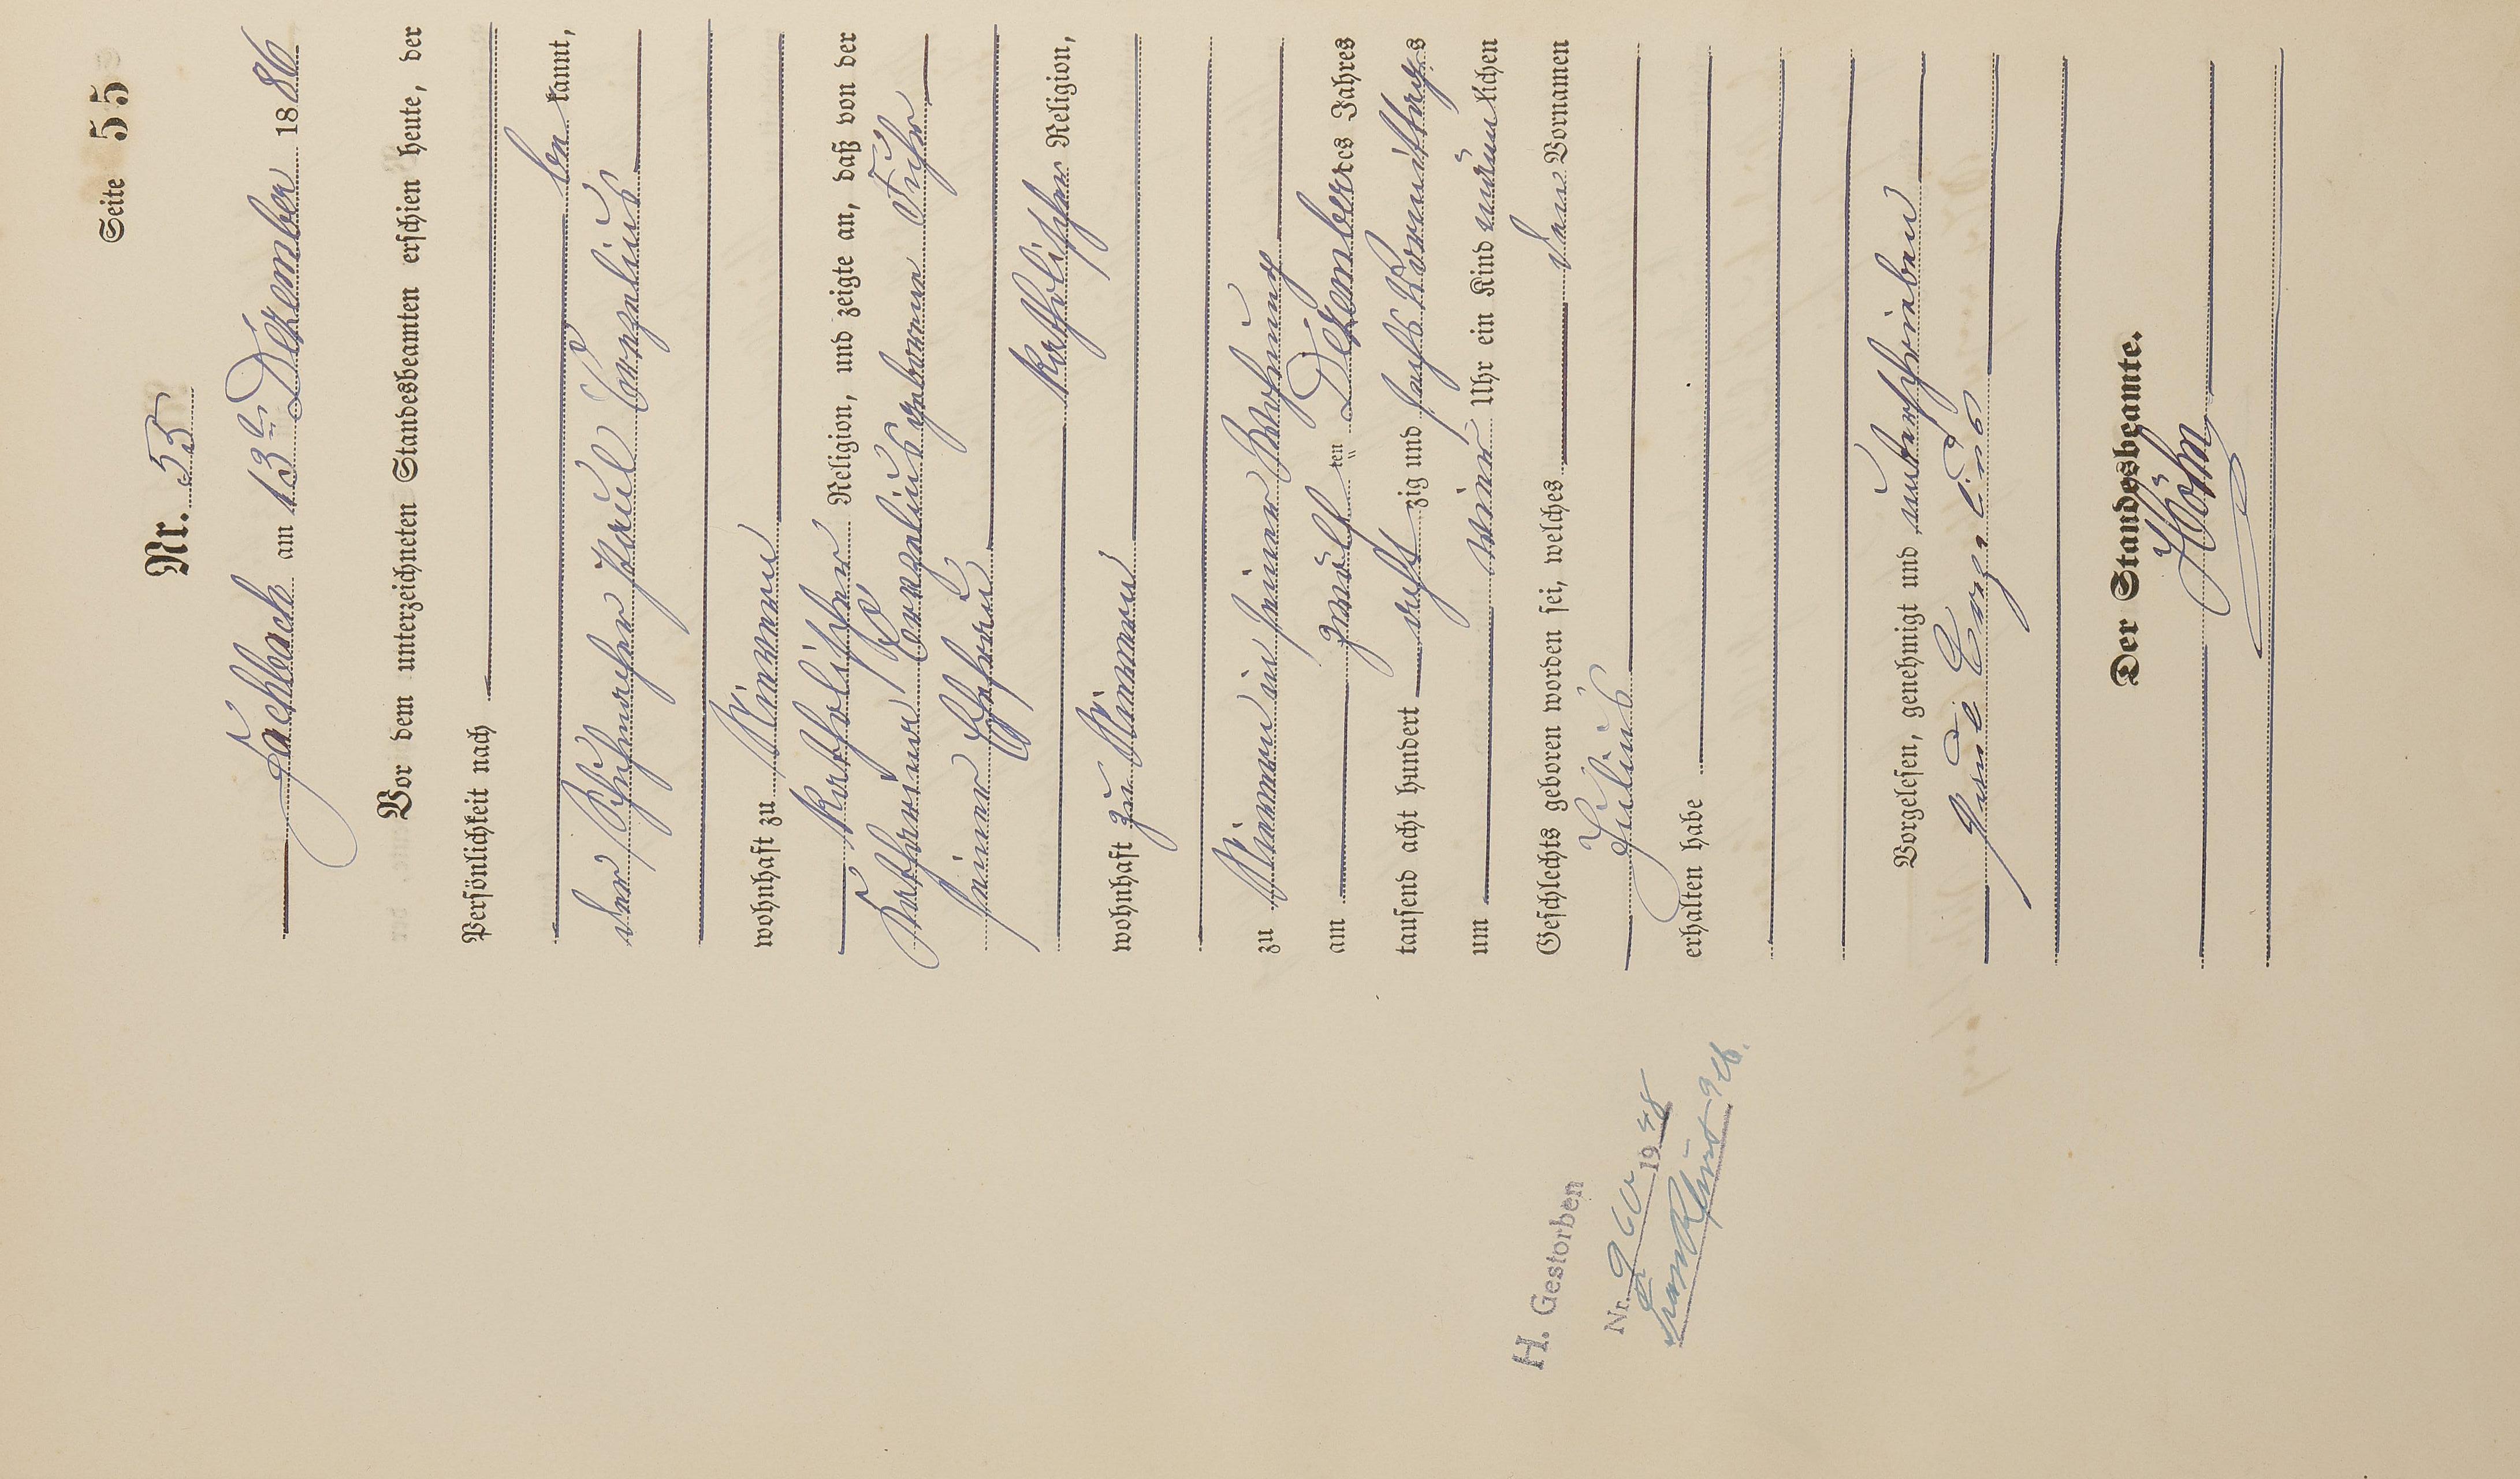 Seite 55
Nr. 55
Fachbach am 13ten Dezember 1886
Vor dem unterzeichneten Standesbeamten erschien heute, der
Persönlichkeit nach
be kannt,
der Schuhmacher Paul Corzelius
wohnhaft zu Nievern
katholischer Religion, und zeigte an, daß von der
Katharina Corzelius geborenen Fuhr
seiner Ehefrau
katholischer Religion,
wohnhaft zu Nievern
zu Nievern in seiner Wohnung
am zwölf ten Dezember tes Jahres
tausend acht hundert acht zig und sechs Vormittags
um Uhr ein Kind männlichen
Geschlechts geboren worden sei, welches den Vornamen
Julius
erhalten habe
Vorgelesen, genehmigt und unterschrieben
Paul Corzelius
Der Standesbeamte.
Höhn
H. Gestorben
Nr. 960 1948
Frankfurt